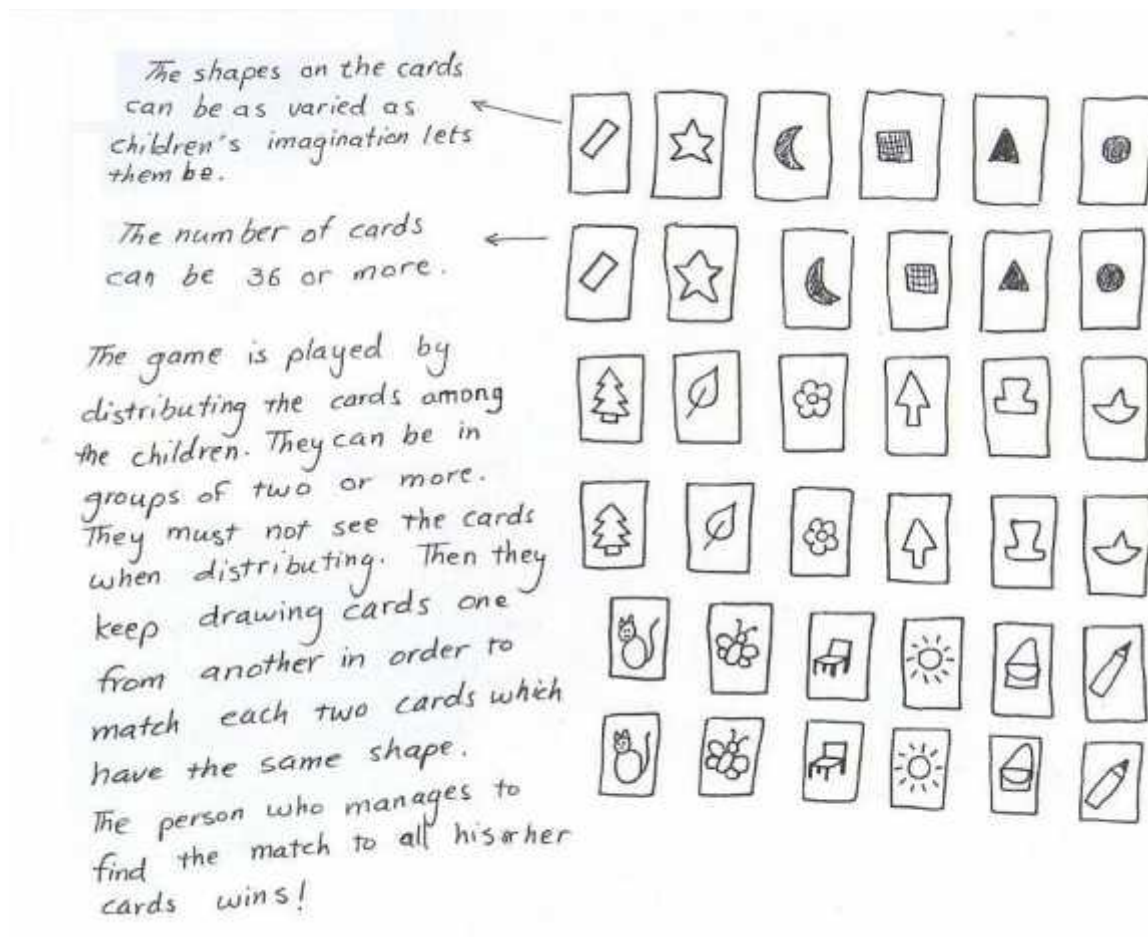 The shapes on the cards
can be as varied as
children's imagination lets
them be.
The number of cards
can be 36 or more.
The game is played by
distributing the cards among
the children. They can be in
groups of two or more.
They must not see the cards
when distributing. Then they
keep drawing cards one
from another in order to
match each two cards which
have the same shape.
The person who manages to
find the match to all his or her
cards wins!